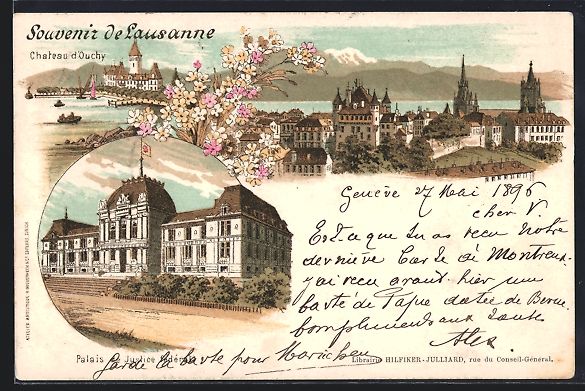 Souvenir de Lausanne
Chateau d'Ouchy
Genève 27 Mai 1896
cher V.
Est-ce que tu as reçu notre
dernière Carte de Montreux
j'ai reçu avant-hier une
carte de Papa datée de Berne.
Compliments aux
Alex.
Palais de Justice fédéral
Librairie HILFIKER-JULLIARD, rue du Conseil-Général.
Garde la carte pour Marichen